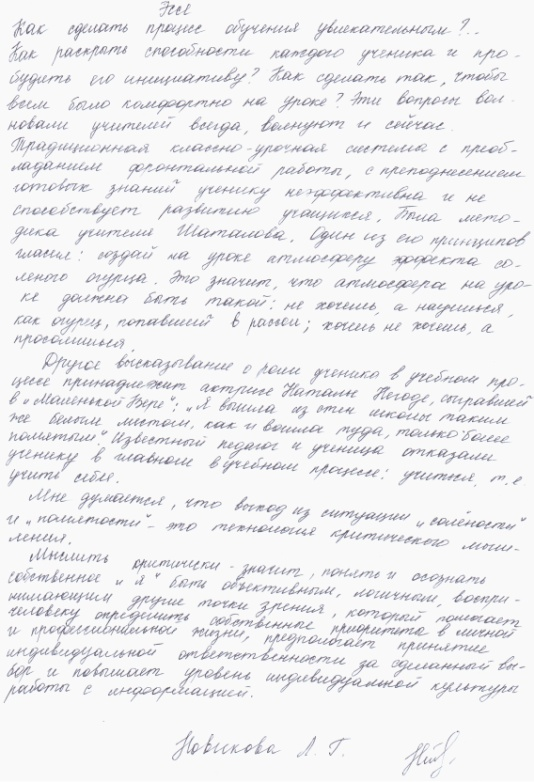 Эссе
Как сделать процесс обучения увлекательным?..
Как раскрыть способности каждого ученика и про-
будить его инициативу? Как сделать так, чтобы
всем было комфортно на уроке? Эти вопросы вол-
новали учителей всегда, волнуют и сейчас.
Традиционная классно-урочная система с преоб-
ладанием фронтальной работы, с преподнесением
готовых знаний ученику неэффективна и не
способствует развитию учащихся. Была мето-
дика учителя Шаталова. Один из его принципов
гласил: создай на уроке атмосферу эффекта со-
леного огурца. Это значит, что атмосфера на уро-
ке должна быть такой: не хочешь, а научишься,
как огурец, попавший в рассол; хочешь не хочешь, а
просолишься.
Другое высказывание о роли ученика в учебном про-
цессе принадлежит актрисе Наталье Негоде, сыгравшей
в „Маленькой Вере“: „Я вышла из стен школы таким
же белым листом, как и вошла туда, только более
помятым“. Известный педагог и ученица отказали
ученику в главном в учебном процессе: учиться, т.е
учить себя.
Мне думается, что выход из ситуации „солёности“
и „помятости“ - это технология критического мыш-
ления.
Мыслить критически - значит, понять и осознать
собственное „я“, быть объективным, логичным, воспри-
нимающим другие точки зрения, который помогает
человеку определить собственные приоритеты в личной
и профессиональной жизни, предполагает принятие
индивидуальной ответственности за сделанный вы-
бор и повышает уровень индивидуальной культуры
работы с информацией.
Новикова Л. Г.